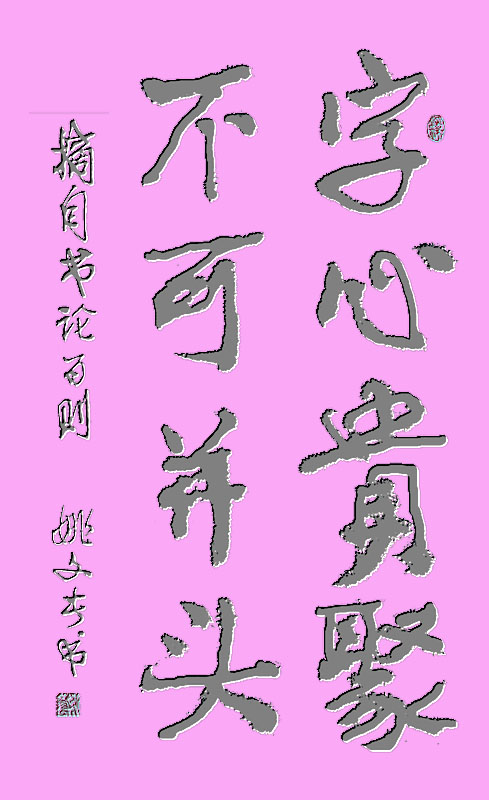 字心贵聚
不可并头
摘自书论百则
姚文书